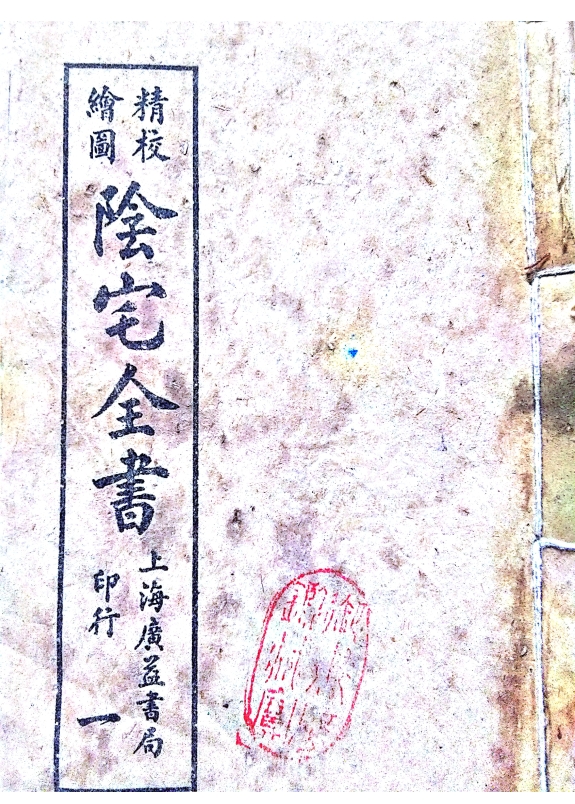 精校
繪圖
陰宅全書
上海廣益書局
印行
一